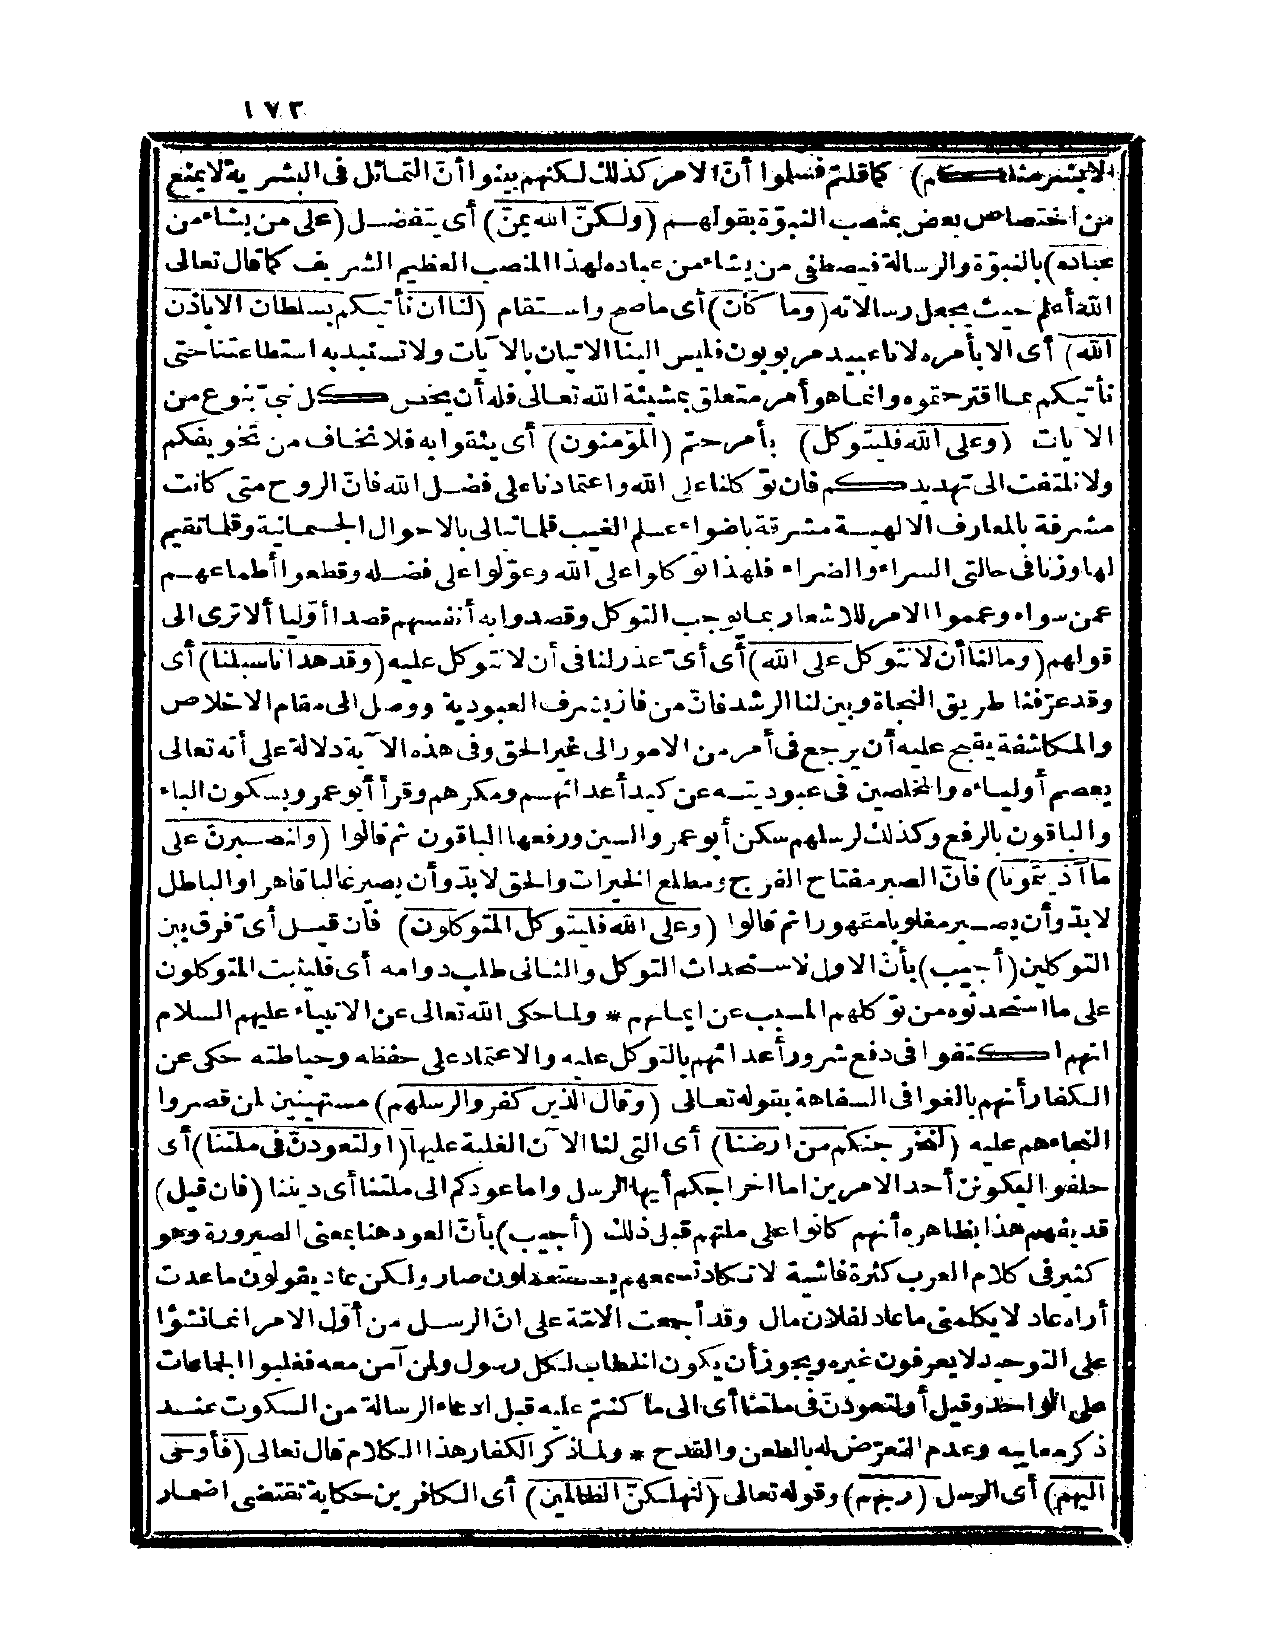 ١٧٣
الا بشر مثلكم) كما قلتم فسلموا أنّ الامر كذلك لكنهم بينوا أنّ التماثل فى البشرية لا يمنع
من اختصاص بعض بمنصب النبوّة بقولهم (ولكنّ الله يمنّ) أى يتفضل (على من يشاء من
عباده) بالنبوّة والرسالة فيصطفى من يشاء من عباده لهذا المنصب العظيم الشريف كما قال تعالى
الله أعلم حيث يجعل رسالاته (وما كان) أى ما صح واستقام (لنا ان نأتيكم بسلطان الا باذن
الله) أى الا بأمره لانا عبيد مربوبون فليس الينا الاتيان بالآيات ولا تستبد به استطاعتنا حتى
نأتيكم بما اقترحتموه وانما هو أمر متعلق بمشيئة الله تعالى فله أن يخص كل نبىّ بنوع من
الآيات (وعلى الله فليتوكل) بأمر حتم (المؤمنون) أى يثقوا به فلا نخاف من تخويفكم
ولا نلتفت الى تهديدكم فان توكلنا على الله واعتمادنا على فضل الله فانّ الروح متى كانت
مشرفة بالمعارف الالهية مشرقة باضواء علم الغيب قلما تبالى بالاحوال الجسمانية وقلما تقيم
لها وزنا فى حالتى السراء والضراء فلهذا توكلوا على الله وعوّلوا على فضله وقطعوا أطماعهم
عمن سواه وعمموا الامر للاشعار بما يوجب التوكل وقصدوا به أنفسهم قصدا أوّليا ألا ترى الى
قولهم (وما لنا أن لا نتوكل على الله) أى أىّ عذر لنا فى أن لا نتوكل عليه (وقد هدانا سبلنا) أى
وقد عرّفنا طريق النجاة وبين لنا الرشد فانّ من فاز بشرف العبودية ووصل الى مقام الاخلاص
والمكاشفة يقبح عليه أن يرجع فى أمر من الامور الى غير الحق وفى هذه الآية دلالة على أنه تعالى
يعصم أولياءه والمخلصين فى عبوديته عن كيد أعدائهم ومكرهم وقرأ أبو عمرو بسكون الباء
والباقون بالرفع وكذلك لرسلهم سكن أبو عمرو السين ورفعها الباقون ثم قالوا (ولنصبرنّ على
ما آذيتمونا) فانّ الصبر مفتاح الفرج ومطلع الخيرات والحق لا بدّ وأن يصير غالبا قاهرا والباطل
لا بدّ وأن يصير مغلوبا مقهورا ثم قالوا (وعلى الله فليتوكل المتوكلون) فان قيل أىّ فرق بين
التوكلين (أجيب) بأنّ الاول لاستحداث التوكل والثانى طلب دوامه أى فليثبت المتوكلون
على ما استحدثوه من توكلهم المسبب عن ايمانهم * ولما حكى الله تعالى عن الانبياء عليهم السلام
انهم اكتفوا فى دفع شرور أعدائهم بالتوكل عليه والاعتماد على حفظه وحياطته حكى عن
الكفار أنهم بالغوا فى السفاهة بقوله تعالى (وقال الذين كفروا لرسلهم) مستهينين لمن قصروا
التجاءهم عليه (لنخرجنكم من ارضنا) أى التى لنا الآن الغلبة عليها (أو لتعودنّ فى ملتنا) أى
حلفوا ليكونن أحد الامرين اما اخراجكم أيها الرسل واما عودكم الى ملتنا أى ديننا (فان قيل)
قد يفهم هذا بظاهره أنهم كانوا على ملتهم قبل ذلك (أجيب) بأنّ العود هنا بمعنى الصيرورة وهو
كثير فى كلام العرب كثرة فاشية لا تكاد تسمعهم يستعملون صار ولكن عاد يقولون ما عدت
أراه عاد لا يكلمنى ما عاد لفلان مال وقد أجمعت الامّة على انّ الرسل من أوّل الامر انما نشؤا
على التوحيد لا يعرفون غيره ويجوز أن يكون الخطاب لكل رسول ولمن آمن معه فغلبوا الجماعات
على الواحد وقيل أو لتعودنّ فى ملتنا أى الى ما كنتم عليه قبل ادعاء الرسالة من السكوت عند
ذكر معايبه وعدم التعرّض له بالطعن والقدح * ولما ذكر الكفار هذا الكلام قال تعالى (فأوحى
اليهم) أى الرسل (ربهم) وقوله تعالى (لنهلكنّ الظالمين) أى الكافرين حكاية تقتضى اضمار